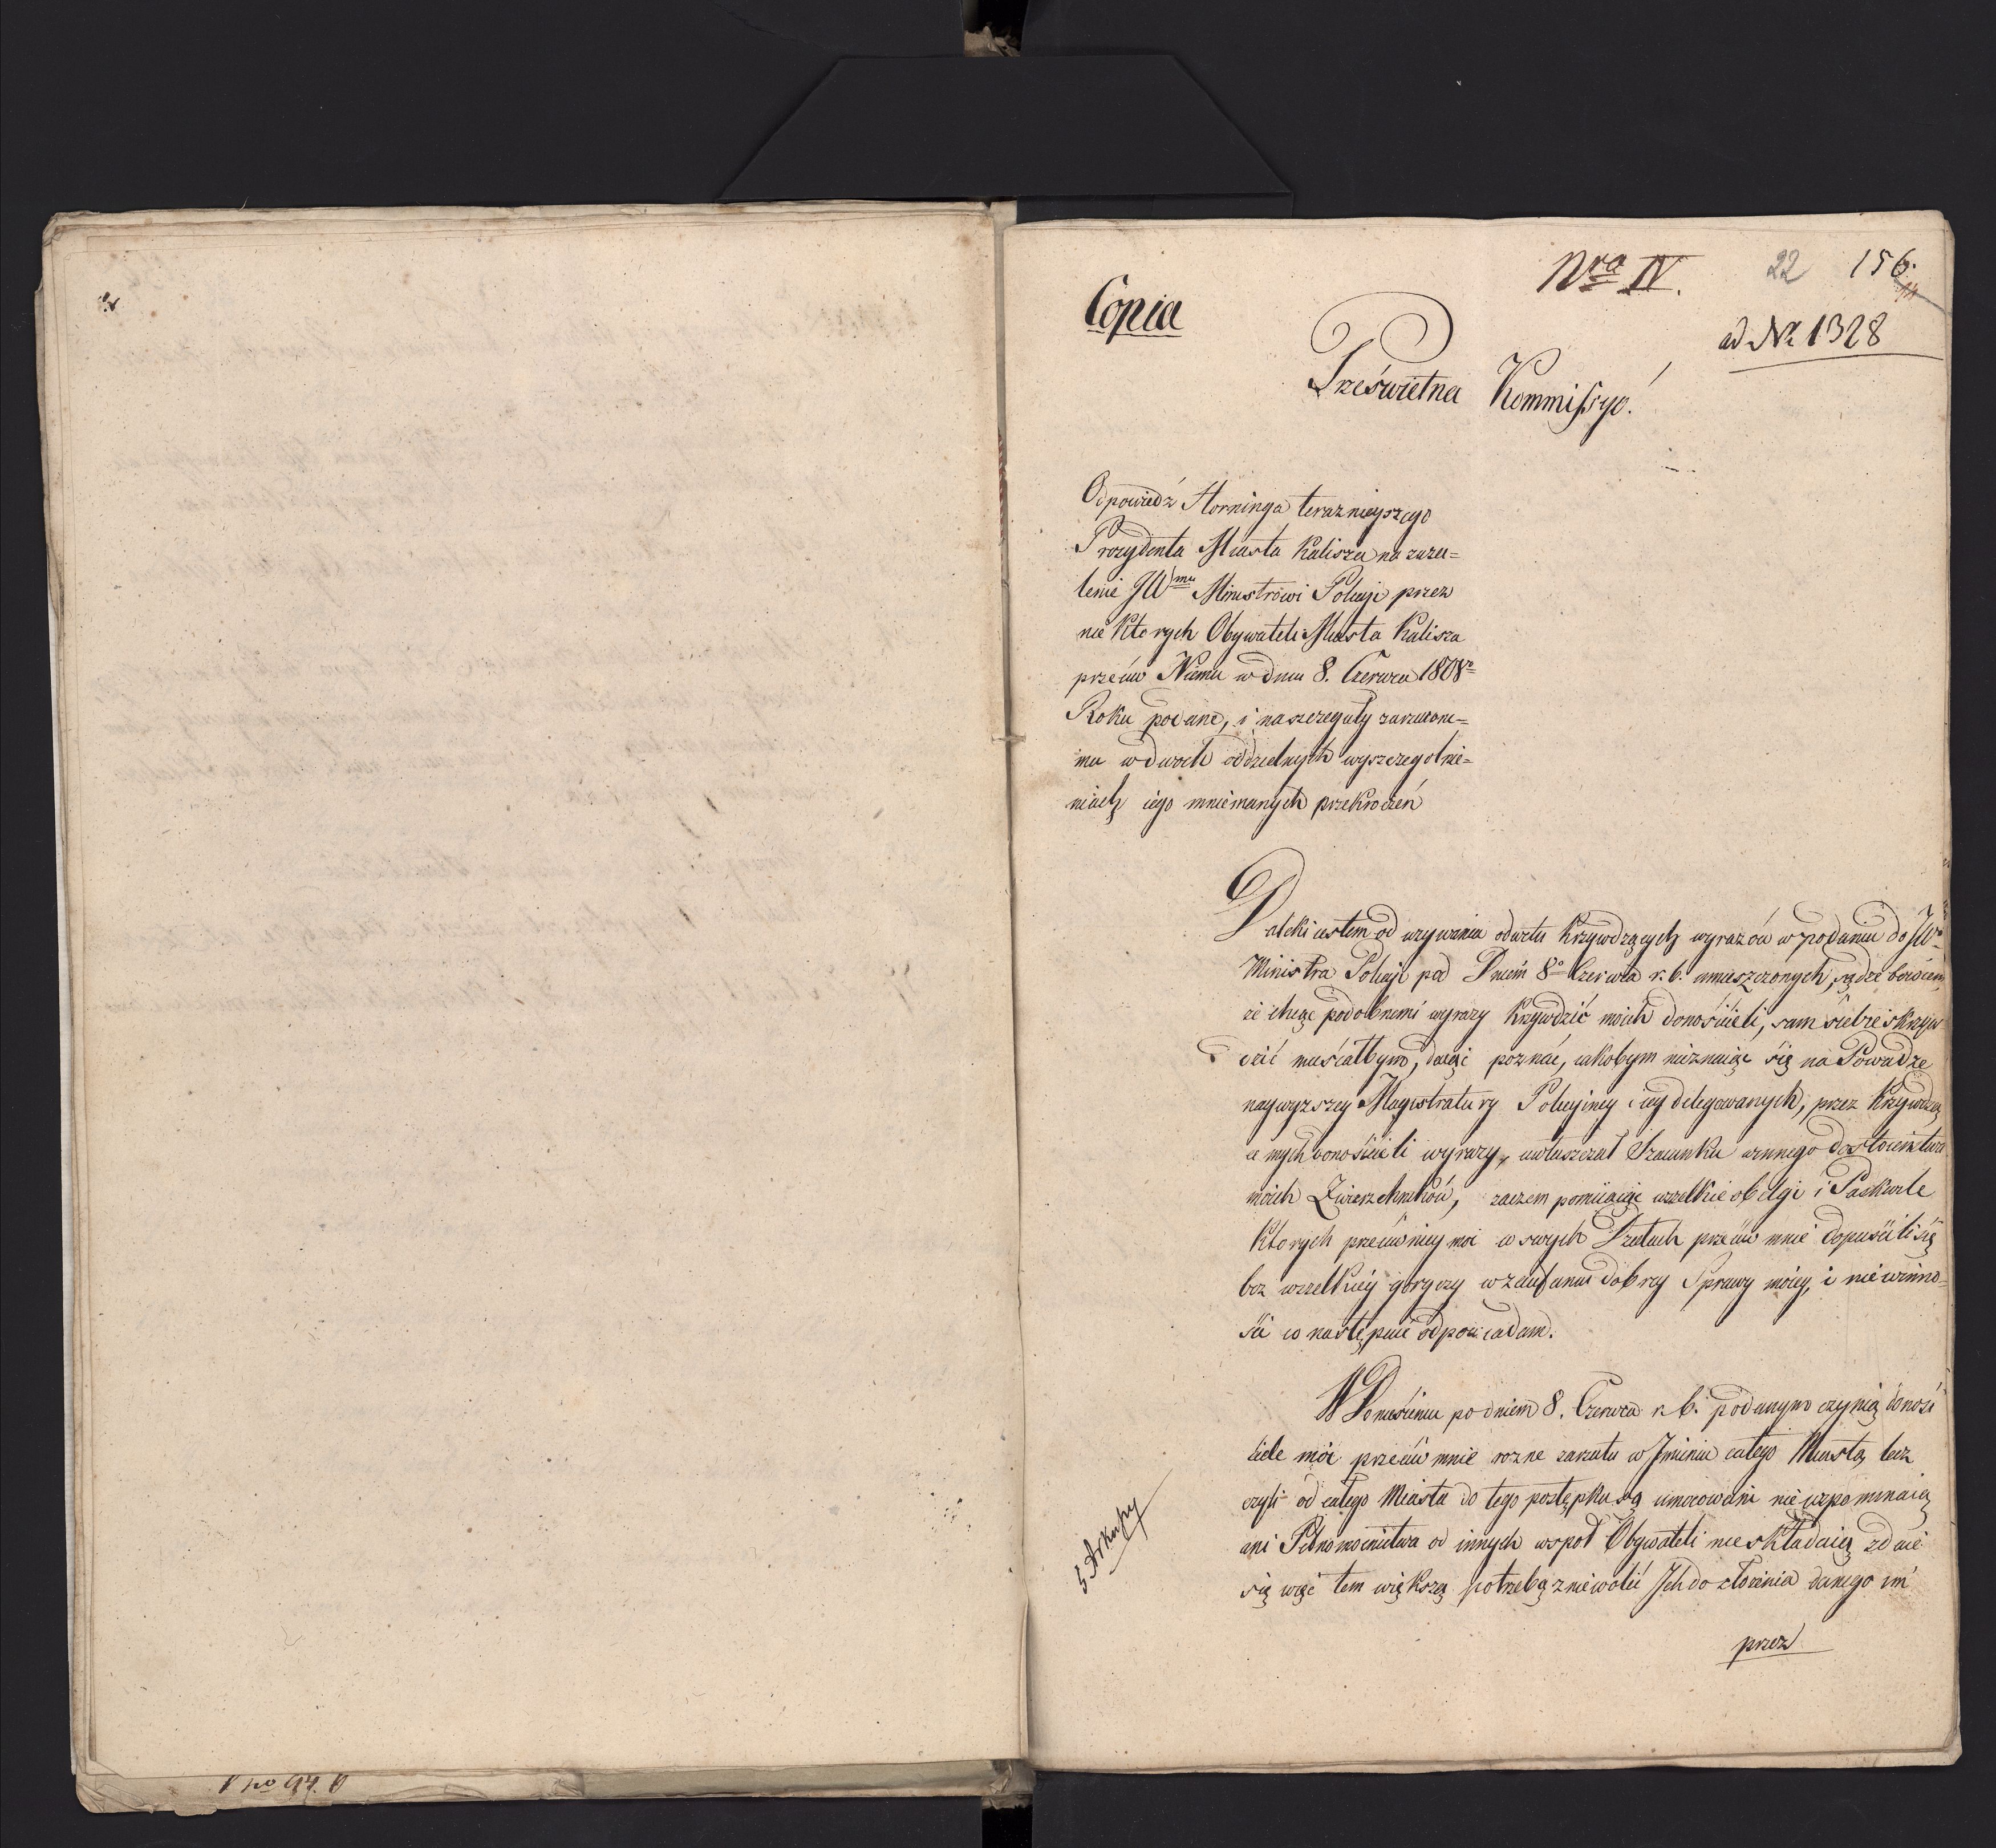 Nro IV.
22 156.
Copia
ad Nr 1328
Prześwietna Kommissyo!
Odpowiedź Horninga teraznieyszego
Prezydenta Miasta Kalisza na zaza=
lenie JWmu Ministrowi Policyi przez
nie ktorych Obywateli Miasta Kalisza
przeciw Niemu w dniu 8. Czerwca 1808º
Roku podane, i na szczeguły zarzucone=
mu w dwoch oddzielnych wyszczegolnie=
niach iego mniemanych przekroczeń
Daleki iestem od uzywania odwetu krzywdzących wyrazów w podaniu do JWº
Ministra Policyi pod Dniem 8º Czerwca r. b. umieszczonych, sądzę bowiem
ze chcąc podobnemi wyrazy krzywdzić moich donosicieli, sam siebie skrzyw
dzić musiałbym, daiąc poznać, iakobym nieznaiąc się na Powadze
naywyzszey Magistratury Policyiney i iey delegowanych, przez krzywdzą
ce mych donosicieli wyrazy, uwłaszczał Szacunku winnego dostoieństwu
moich Zwierzchników, zaczem pomiiaiąc wszelkie obelgi i Paskwile
Ktorych przeciwnicy moi w swych Rzutach przeciw mnie dopuścili się
bez wszelkiey gorączy w zaufaniu dobrey Sprawy moiey, i niewinno=
ści co następuie odpowiadam.
W Doniesieniu pod dniem 8. Czerwca r. b. podanym czynią donosi
ciele moi przeciw mnie rozne zarzuty w Imieniu całego Miasta, lecz
czyli od całego Miasta do tego postępku są umocowani nie wspominaią
ani Pełnomocnictwa od innych wspoł Obywateli nie składaią zdaie
się więc tem większą potrzebą zniewolić Ich do złożenia danego im
5 Arkuszy
przez